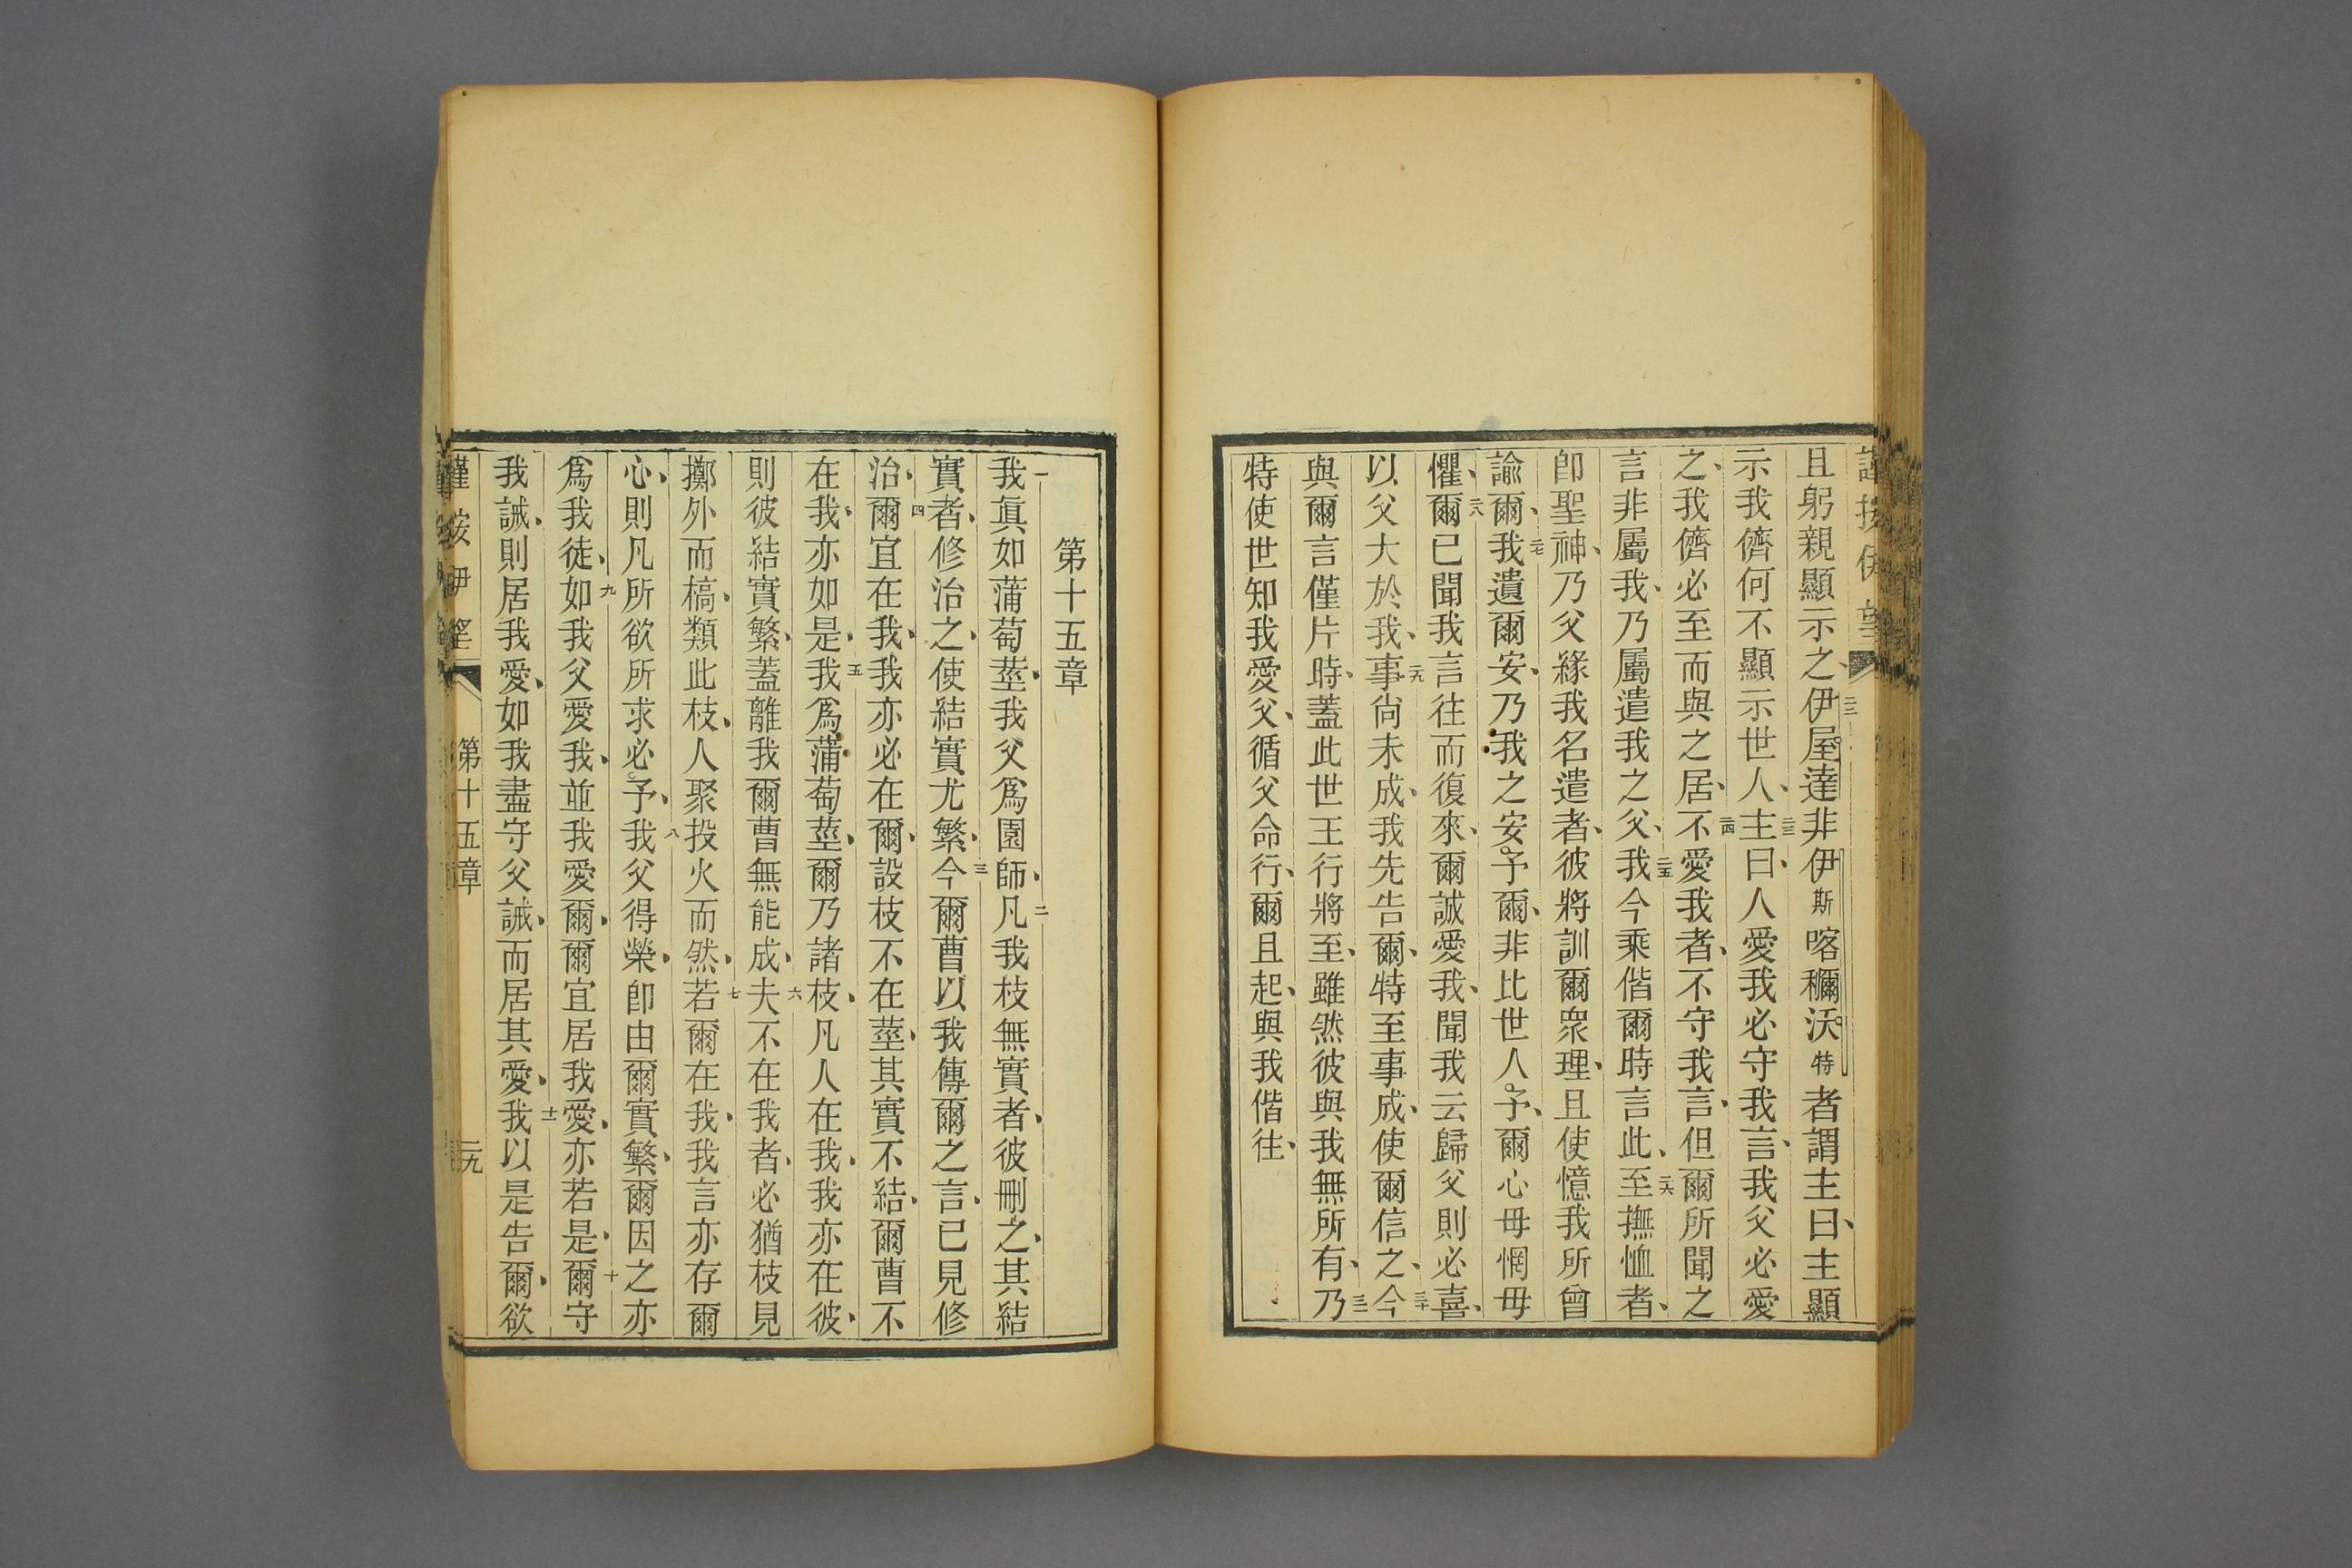 且躬親顯示之、二二伊屋。達非伊斯喀穪沃。特者謂主曰、主顯
示我儕何不顯示世人、二三主曰、人愛我必守我言、我父必愛
之、我儕必至而與之居、二四不愛我者、不守我言、但爾所聞之
言非屬我、乃屬遣我之父、二五我今乘偕爾時言此、二六至撫恤者、
卽聖神、乃父緣我名遣者、彼將訓爾衆理、且使憶我所曾
諭爾、二七我遺爾安、乃我之安。予爾、非比世人。予、爾心毋惘毋
懼、二八爾已聞我言往而復來、爾誠愛我、聞我云歸父則必喜、
以父大於我、二九事尙未成、我先告爾、特至事成、使爾信之、三十今
與爾言僅片時、蓋此世王行將至、雖然彼與我無所有、三一乃
特使世知我愛父、循父命行、爾且起、與我偕往、
第十五章
一我眞如蒲萄莖、我父爲園師、二凡我枝無實者、彼刪之、其結
實者、修治之、使結實尤繁、三今爾曹以我傳爾之言、已見修
治、四爾宜在我、我亦必在爾、設枝不在莖、其實不結、爾曹不
在我、亦如是、五我爲蒲萄莖、爾乃諸枝、凡人在我、我亦在彼、
則彼結實繁、蓋離我爾曹無能成、六夫不在我者、必猶枝見
擲外而槁、類此枝、人聚投火而然、七若爾在我、我言亦存爾
心、則凡所欲所求必。予、八我父得榮、卽由爾實繁、爾因之亦
爲我徒、九如我父愛我、並我愛爾、爾宜居我愛、亦若是、十爾守
我誡、則居我愛、如我盡守父誡、而居其愛、十一我以是告爾、欲
第十五章
二九